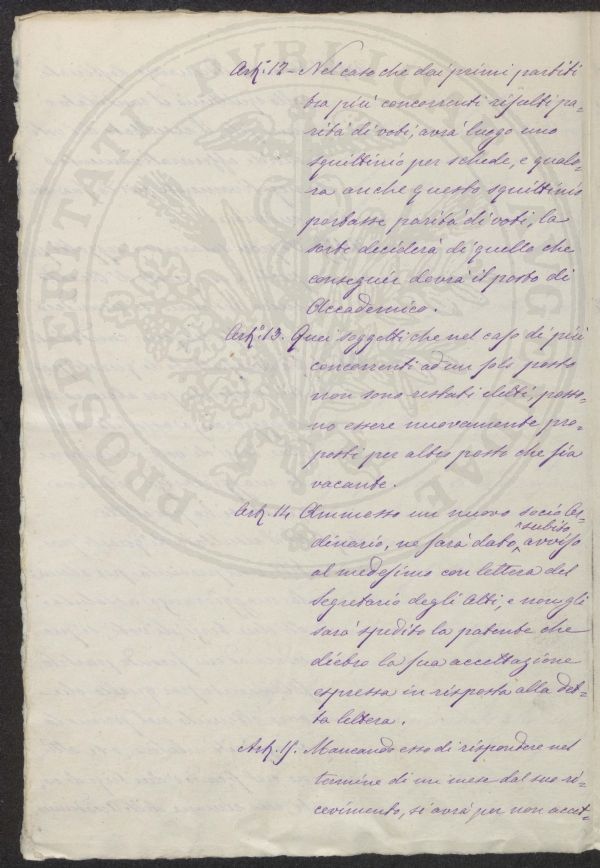 Art.º 12 – Nel caso che dai primi partiti
tra più concorrenti risulti pa-
rità di voti, avrà luogo uno
squittinio per schede, e qualo-
ra anche questo squittinio
portasse parità di voti, la
sorte deciderà di quello che
conseguir dovrà il posto di
Accademico.
Art.º 13. Quei soggetti che nel caso di più
concorrenti ad un solo posto
non sono restati eletti, posso-
no essere nuovamente pro-
posti per altro posto che sia
vacante.
Art. 14 Ammesso un nuovo socio Or-
dinario, ne sarà dato subito avviso
al medesimo con lettera del
Segretario degli Atti, e non gli
sarà spedito la patente che
dietro la sua accettazione
espressa in risposta alla det-
ta lettera.
Art. 15. Mancando esso di rispondere nel
termine di un mese dal suo ri-
cevimento, si avrà per non accet-
PROSPERITATI PUBLICAE AUGENDAE